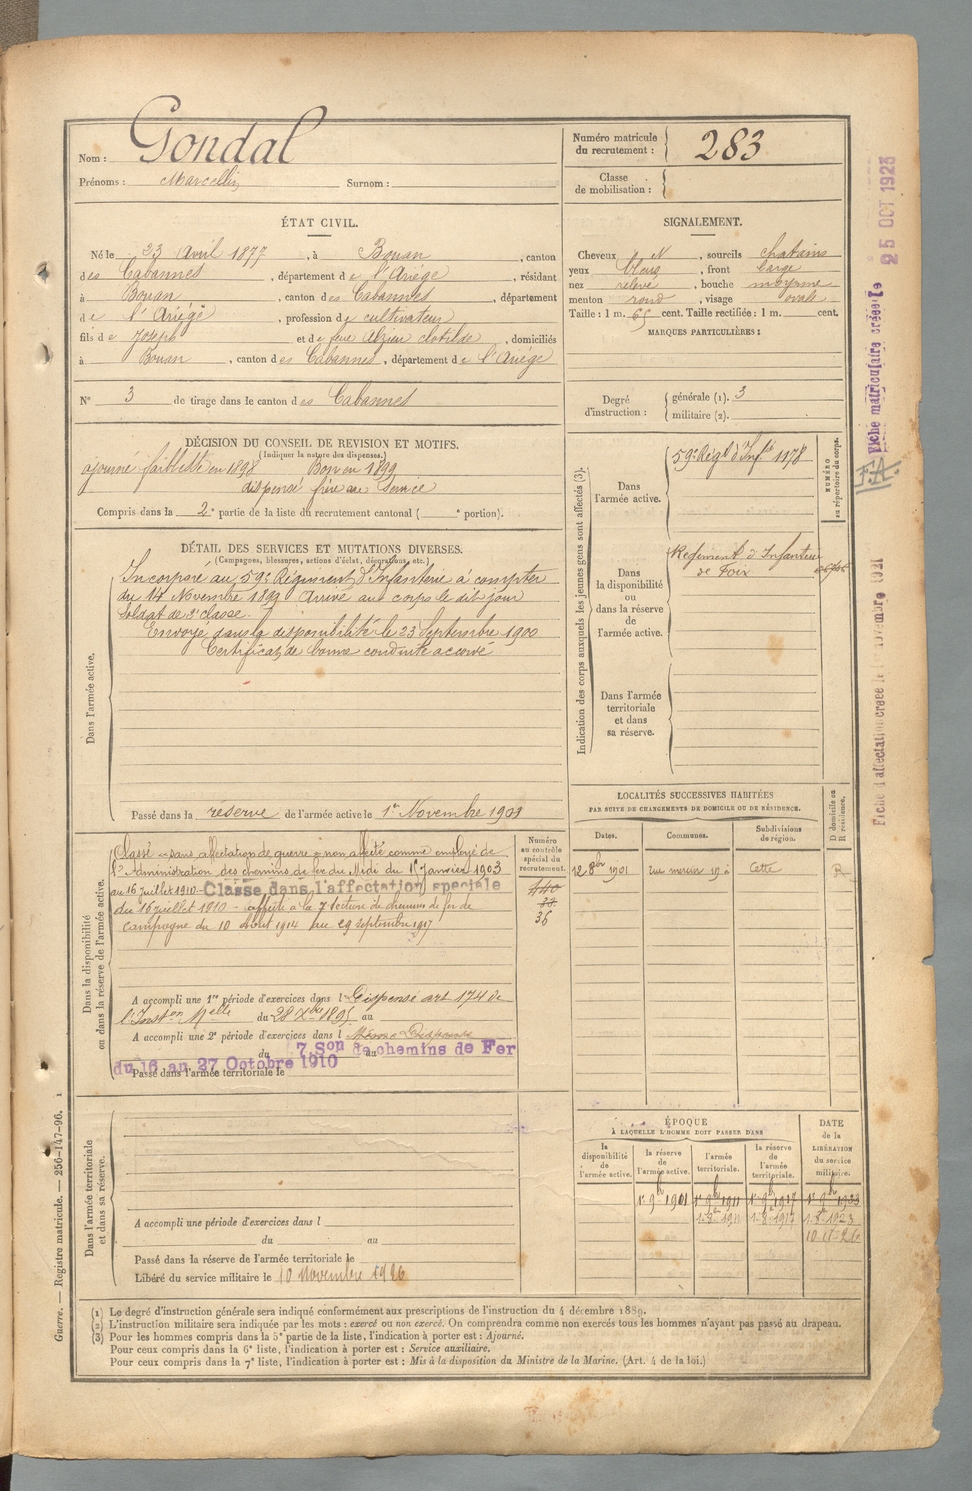 Nom : Gondal
Prénoms : Marcellin Surnom :
Numéro matricule du recrutement : 283
Classe de mobilisation :
ÉTAT CIVIL.
Né le 23 Avril 1877, à Bouan, canton
des Cabannes, département de l'Ariège, résidant
à Bouan, canton des Cabannes, département
de l'Ariège, profession de cultivateur
fils de Joseph et de feue Alzieu Clotilde, domiciliés
à Bouan, canton des Cabannes, département de l'Ariège
N° 3 de tirage dans le canton des Cabannes
SIGNALEMENT.
Cheveux N, sourcils chatains
yeux bleus, front large
nez relevé, bouche moyenne
menton rond, visage ovale
Taille : 1 m. 65 cent. Taille rectifiée : 1 m. cent.
MARQUES PARTICULIÈRES :
Degré d'instruction : générale (1). 3
militaire (2).
DÉCISION DU CONSEIL DE REVISION ET MOTIFS.
(Indiquer la nature des dispenses.)
ajourné faiblesse en 1898 Bon en 1899
dispensé frère au service
Compris dans la 2e partie de la liste du recrutement cantonal ( e portion).
DÉTAIL DES SERVICES ET MUTATIONS DIVERSES.
(Campagnes, blessures, actions d'éclat, décorations, etc.)
Dans l'armée active.
Incorporé au 59e Régiment d'Infanterie à compter
du 14 Novembre 1899 Arrivé au corps le dit jour
Soldat de 2e classe.
Envoyé dans la disponibilité le 23 Septembre 1900
Certificat de bonne conduite accordé
Passé dans la réserve de l'armée active le 1er Novembre 1901
Indication des corps auxquels les jeunes gens sont affectés (3).
NUMÉRO au répertoire du corps.
Dans l'armée active.
59e Régt d'Infie 1178
Dans la disponibilité ou dans la réserve de l'armée active.
Régiment d'Infanterie
de Foix
Dans l'armée territoriale et dans sa réserve.
LOCALITÉS SUCCESSIVES HABITÉES
PAR SUITE DE CHANGEMENTS DE DOMICILE OU DE RÉSIDENCE.
Dates. Communes. Subdivisions de région. D domicile ou R résidence.
12 8bre 1901 Cette R
Dans la disponibilité ou dans la réserve de l'armée active.
Numéro au contrôle spécial du recrutement.
440
38
36
Classé "sans affectation de guerre" non affecté comme employé de
l'Administration des chemins de fer du Midi du 1er Janvier 1903
au 16 juillet 1910 - Classé dans l'affectation spéciale
du 16 juillet 1910 - affecté à la 7e section de chemins de fer de
campagne du 10 Août 1914 au 29 septembre 1917
A accompli une 1re période d'exercices dans l Dispensé art 174 de
l'Inston Melle du 28 Xbre 1895 au
A accompli une 2e période d'exercices dans l
du 7. Son de chemins de Fer au
du 16 au 27 Octobre 1910
Passé dans l'armée territoriale le
Dans l'armée territoriale et dans sa réserve.
A accompli une période d'exercices dans l
du au
Passé dans la réserve de l'armée territoriale le
Libéré du service militaire le 10 Novembre 1926
ÉPOQUE
À LAQUELLE L'HOMME DOIT PASSER DANS
la disponibilité de l'armée active. la réserve de l'armée active. l'armée territoriale. la réserve de l'armée territoriale. DATE de la LIBÉRATION du service militaire.
1er 9bre 1901 1er 9bre 1911 1er 9bre 1917 1er 9bre 1923
1er 8bre 1911 1er 8bre 1917 1er 8bre 1923
10-11-26
(1) Le degré d'instruction générale sera indiqué conformément aux prescriptions de l'instruction du 4 décembre 1889.
(2) L'instruction militaire sera indiquée par les mots : exercé ou non exercé. On comprendra comme non exercés tous les hommes n'ayant pas passé au drapeau.
(3) Pour les hommes compris dans la 5e partie de la liste, l'indication à porter est : Ajourné.
Pour ceux compris dans la 6e liste, l'indication à porter est : Service auxiliaire.
Pour ceux compris dans la 7e liste, l'indication à porter est : Mis à la disposition du Ministre de la Marine. (Art. 4 de la loi.)
Guerre. — Registre matricule. — 256-147-96. 1
Fiche matriculaire créée le 25 OCT 1923
F.A.
Fiche d'affectation créée le 1er Novembre 1921